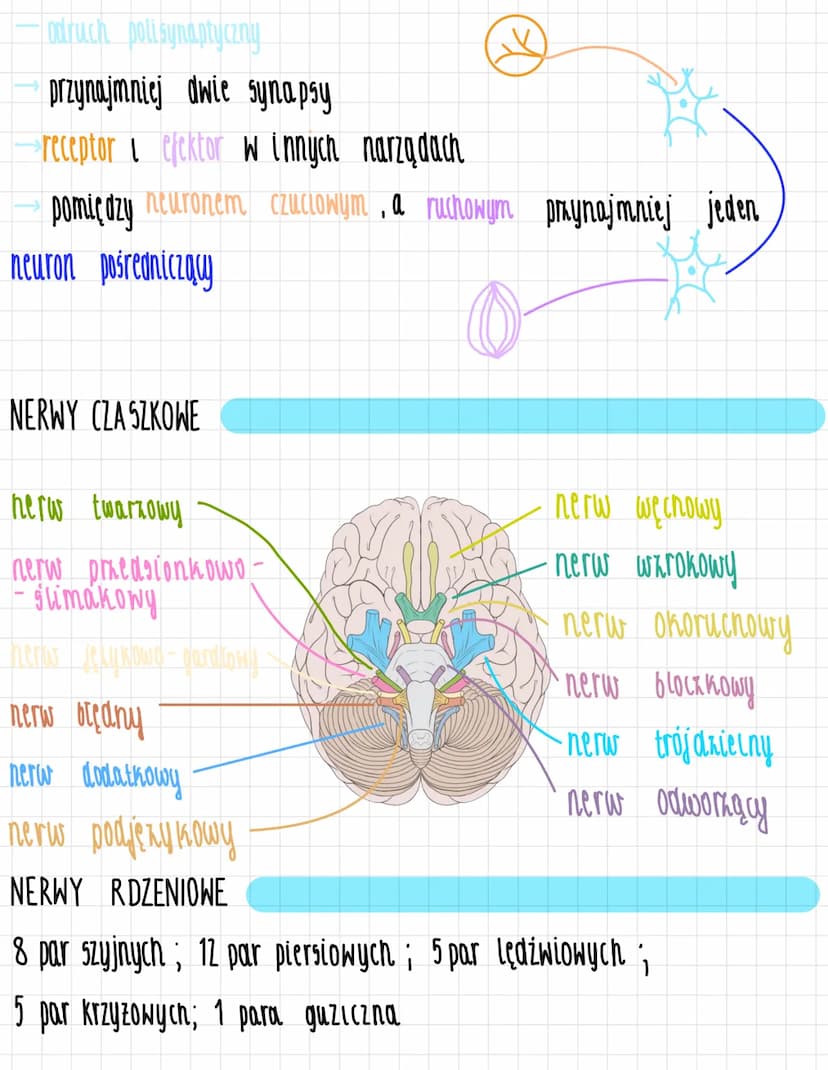 — odruch polisynaptyczny
→ przynajmniej dwie synapsy
→ receptor i efektor w innych narządach
→ pomiędzy neuronem czuciowym, a ruchowym przynajmniej jeden
neuron pośredniczący
NERWY CZASZKOWE
nerw twarzowy
nerw przedsionkowo -
- ślimakowy
nerw językowo-gardłowy
nerw błędny
nerw dodatkowy
nerw podjęzykowy
nerw węchowy
nerw wzrokowy
nerw okoruchowy
nerw bloczkowy
nerw trójdzielny
nerw odworzący
NERWY RDZENIOWE
8 par szyjnych ; 12 par piersiowych ; 5 par lędźwiowych ;
5 par krzyżowych; 1 para guziczna